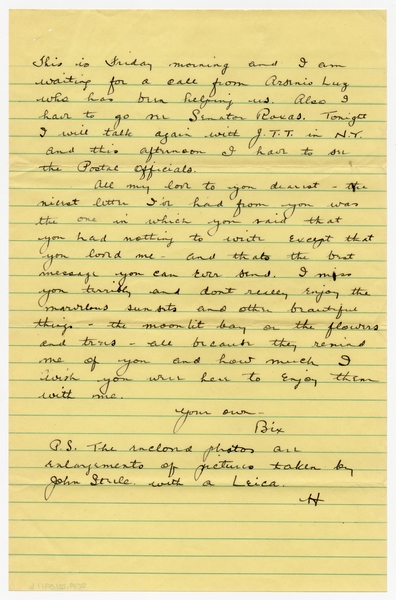 This is Friday morning and I am
waiting for a call from Arsenio Luz
who has been helping us. Also I
have to go see Senator Roxas. Tonight
I will talk again with J.T.T. in N.Y.
and this afternoon I have to see
the Postal Officials.
All my love to you dearest - the
nicest letter I've had from you was
the one in which you said that
you had nothing to write except that
you loved me - and thats the best
message you can ever send. I miss
you terribly and dont really enjoy the
marvelous sunsets and other beautiful
things - the moonlit bay or the flowers
and trees - all because they remind
me of you and how much I
wish you were here to enjoy them
with me.
Your own -
Bix
P.S. The enclosed photos are
enlargements of pictures taken by
John Steele with a Leica.
H